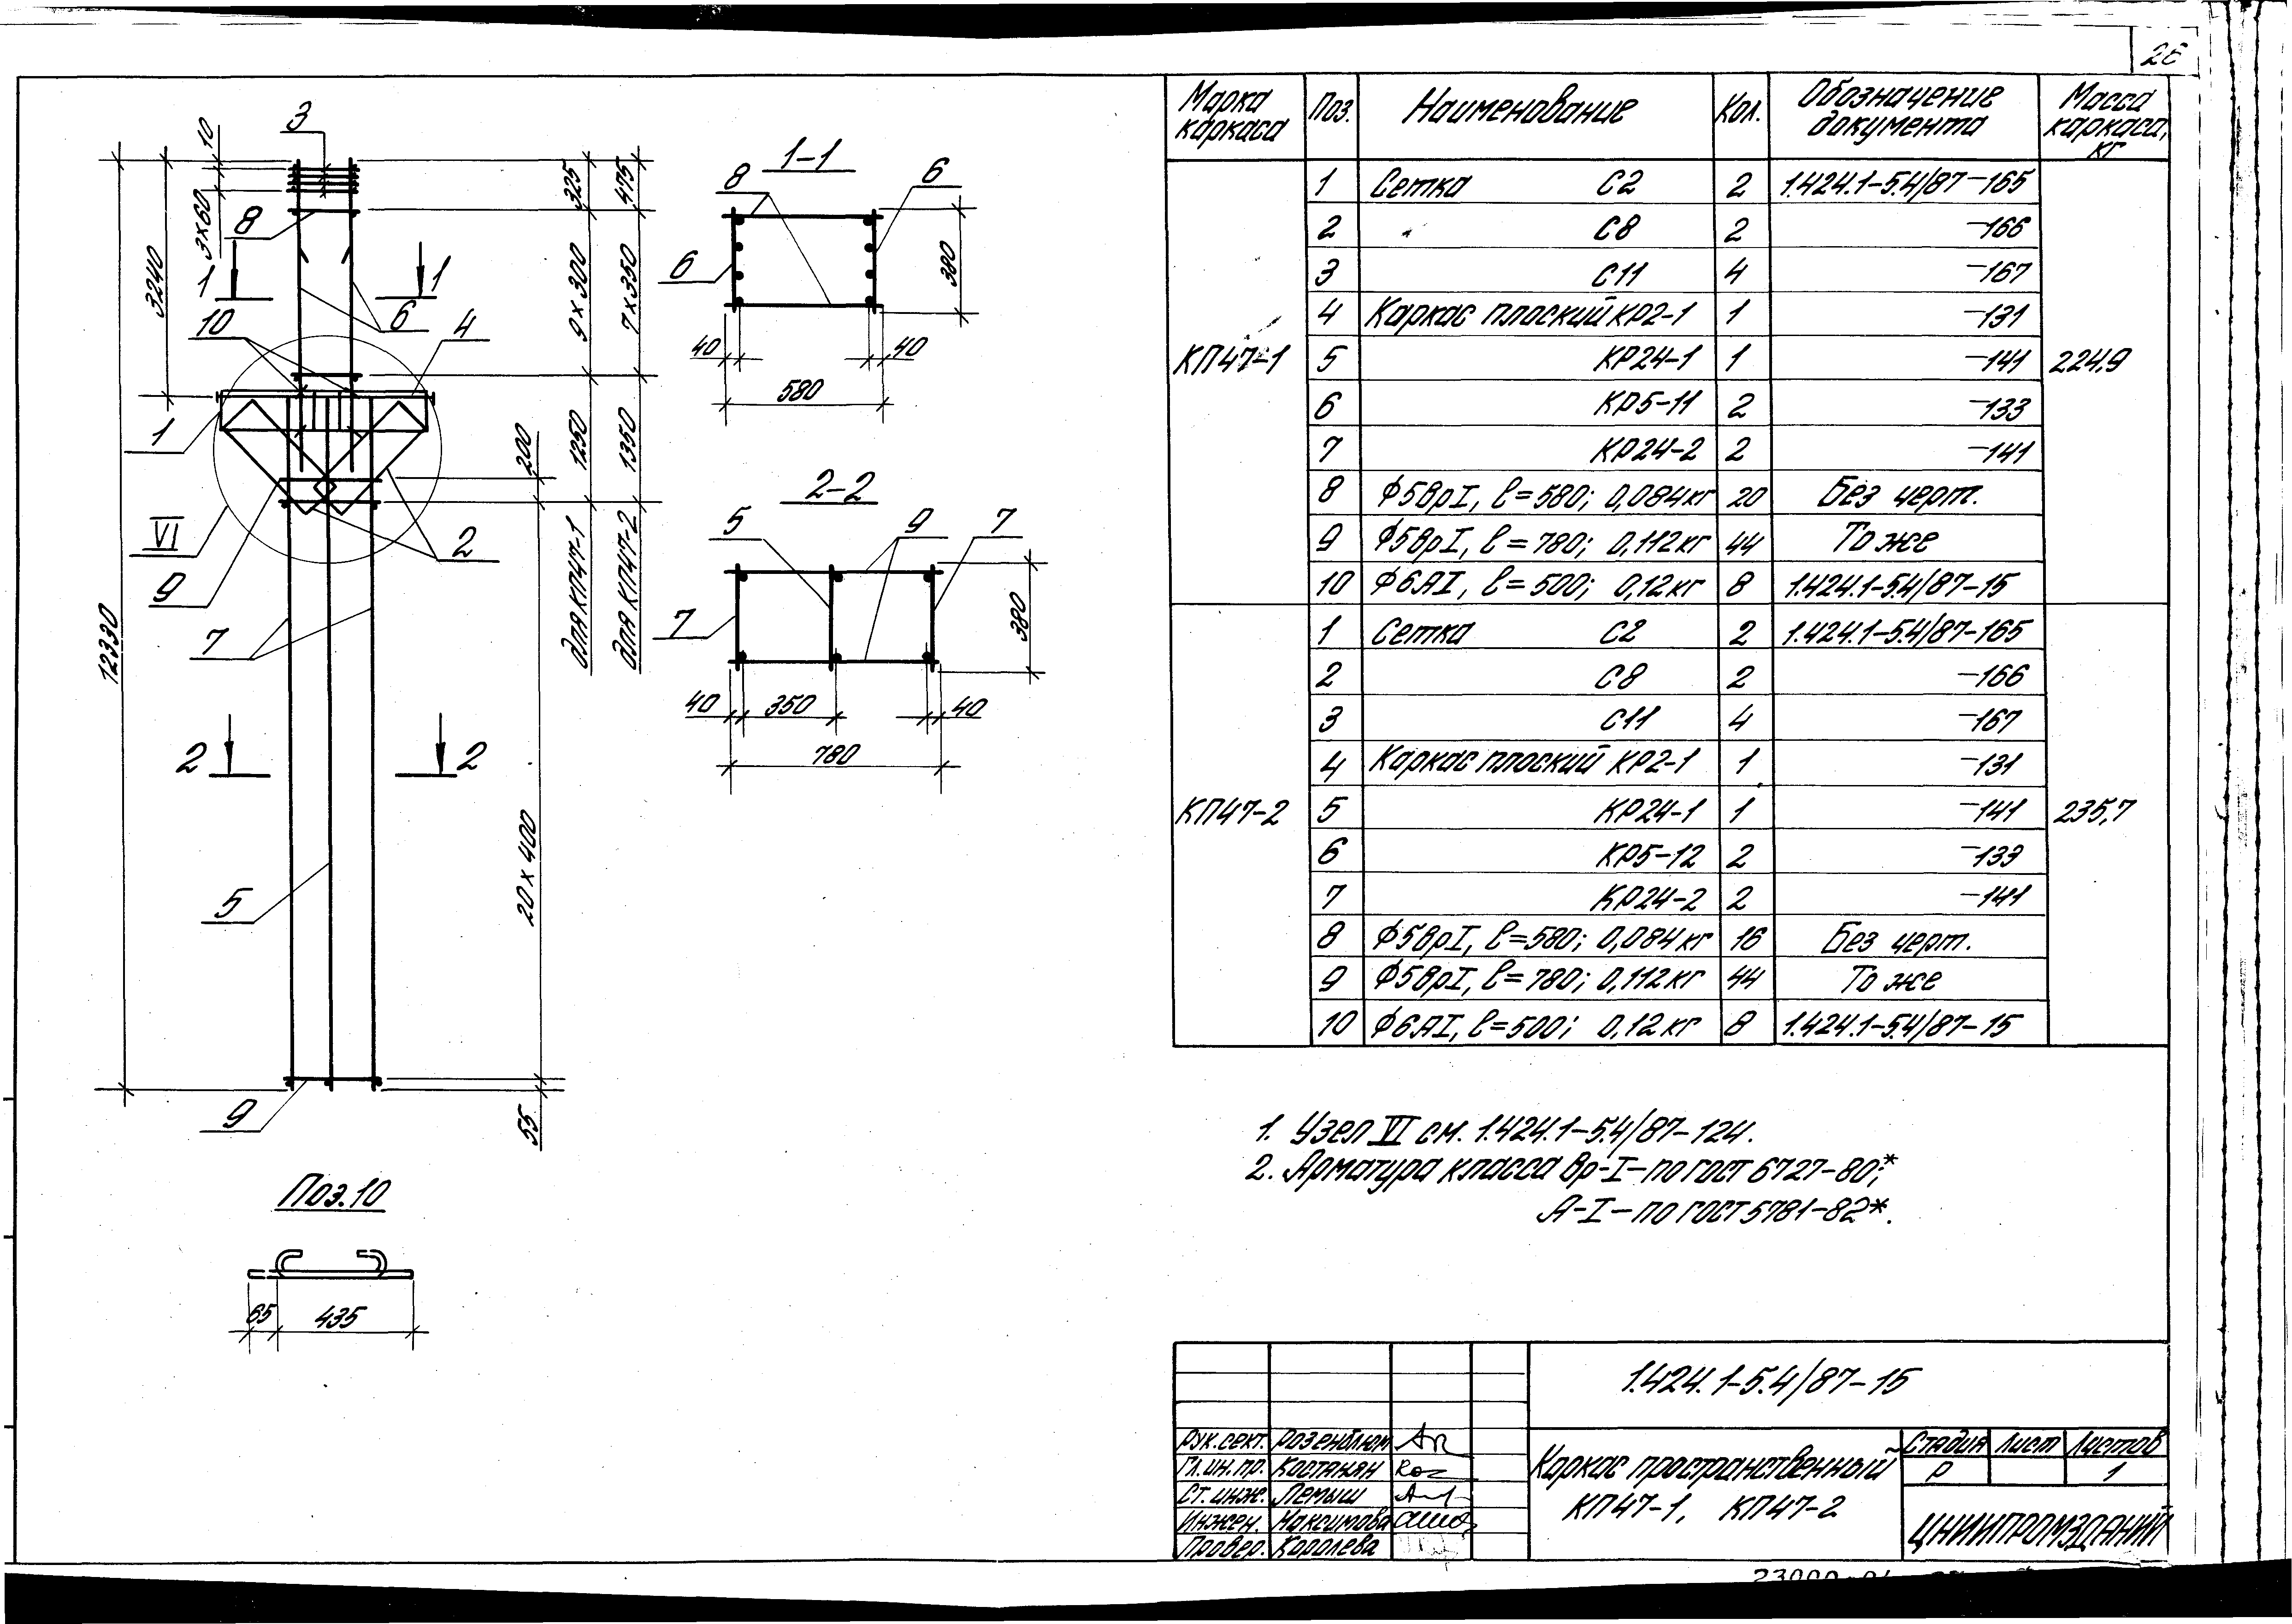 26
Марка каркаса | Поз. | Наименование | Кол. | Обозначение документа | Масса каркаса, кг
КП47-1 | 1 | Сетка С2 | 2 | 1.424.1-5.4/87-165 | 224,9
2 | " С8 | 2 | -166
3 | С11 | 4 | -167
4 | Каркас плоский КР2-1 | 1 | -131
5 | КР24-1 | 1 | -141
6 | КР5-11 | 2 | -133
7 | КР24-2 | 2 | -141
8 | Ф5ВрI, ℓ=580; 0,084кг | 20 | Без черт.
9 | Ф5ВрI, ℓ=780; 0,112кг | 44 | То же
10 | Ф6АI, ℓ=500; 0,12кг | 8 | 1.424.1-5.4/87-15
КП47-2 | 1 | Сетка С2 | 2 | 1.424.1-5.4/87-165 | 235,7
2 | С8 | 2 | -166
3 | С11 | 4 | -167
4 | Каркас плоский КР2-1 | 1 | -131
5 | КР24-1 | 1 | -141
6 | КР5-12 | 2 | -133
7 | КР24-2 | 2 | -141
8 | Ф5ВрI, ℓ=580; 0,084кг | 16 | Без черт.
9 | Ф5ВрI, ℓ=780; 0,112кг | 44 | То же
10 | Ф6АI, ℓ=500; 0,12кг | 8 | 1.424.1-5.4/87-15
3
10
3×60
8
3240
1 1
10
6
4
1
VI
9
2
7
12330
2 2
5
9
325
9×300
1250
для КП47-1
475
7×350
1350
для КП47-2
200
20×400
55
1-1
8
6
6
380
40
40
580
2-2
5
9
7
7
380
40
350
40
780
Поз.10
65
435
1. Узел VI см. 1.424.1-5.4/87-124.
2. Арматура класса Вр-I-по ГОСТ 6727-80;*
А-I-по ГОСТ 5781-82*.
1.424.1-5.4/87-15
Рук.сект. Розенблюм
Гл.ин.пр. Костанян
Ст.инж. Лемыш
Инжен. Максимова
Провер. Королева
Каркас пространственный
КП47-1, КП47-2
Стадия Лист Листов
Р 1
ЦНИИПРОМЗДАНИЙ